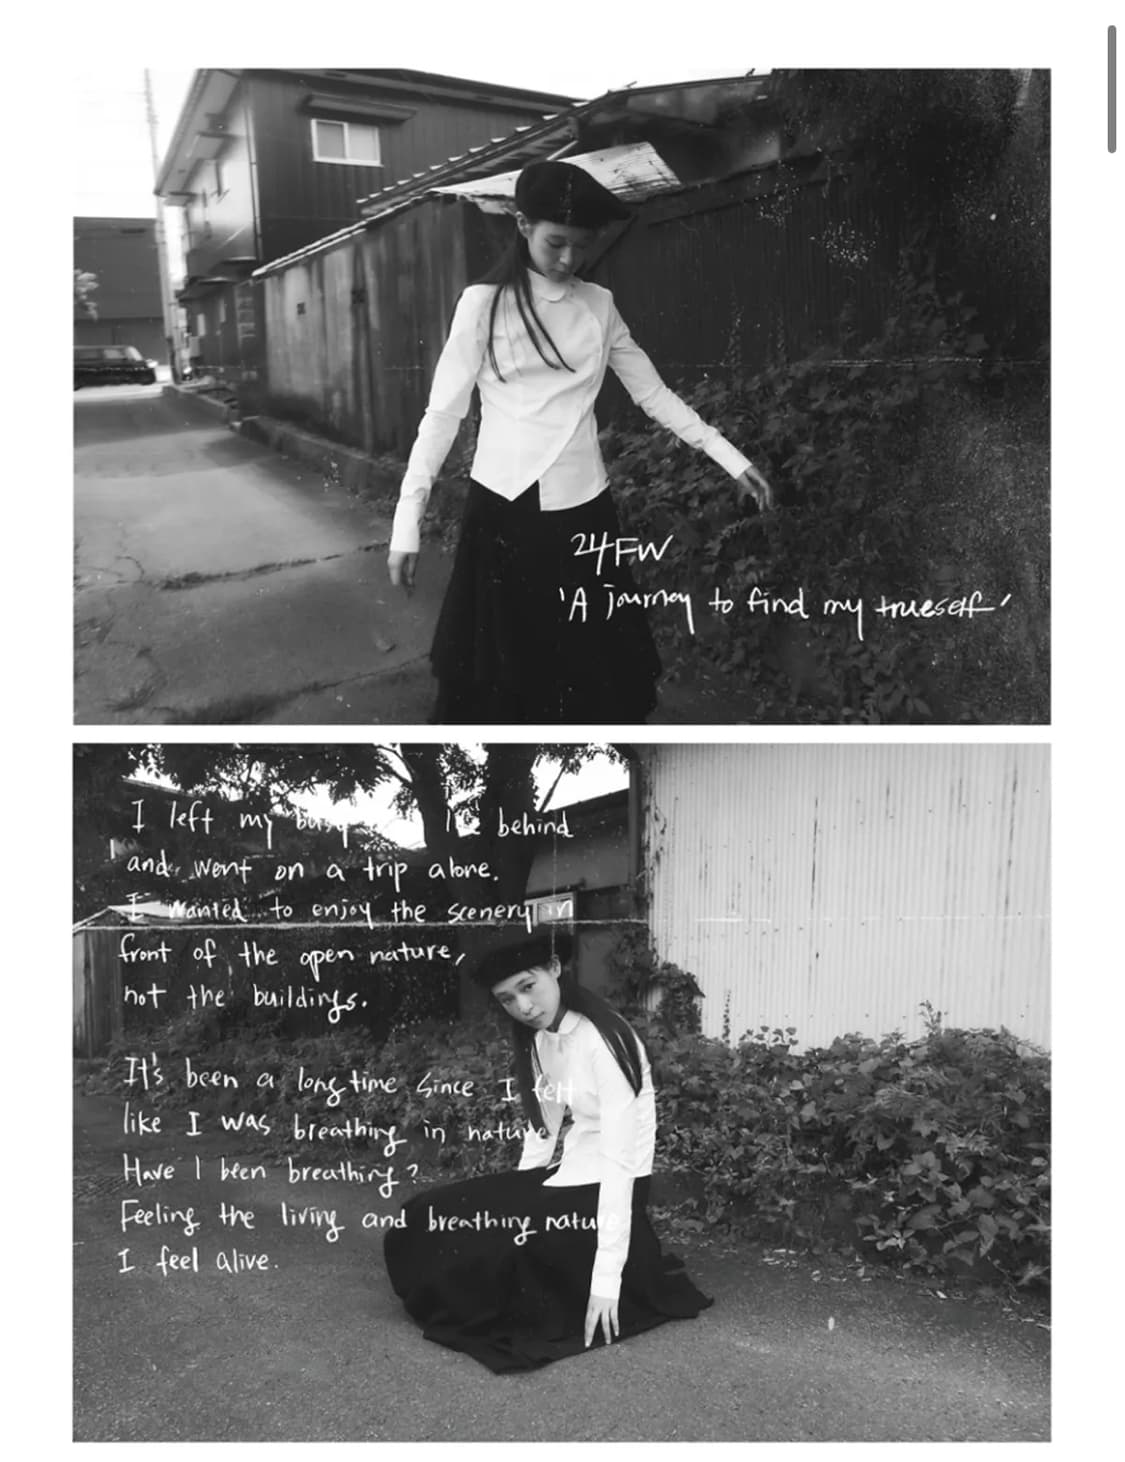 24FW
'A journey to find my trueself'
I left my busy behind
and went on a trip alone.
I wanted to enjoy the scenery in
front of the open nature,
not the buildings.
It's been a long time since I felt
like I was breathing in nature
Have I been breathing?
Feeling the living and breathing nature
I feel alive.